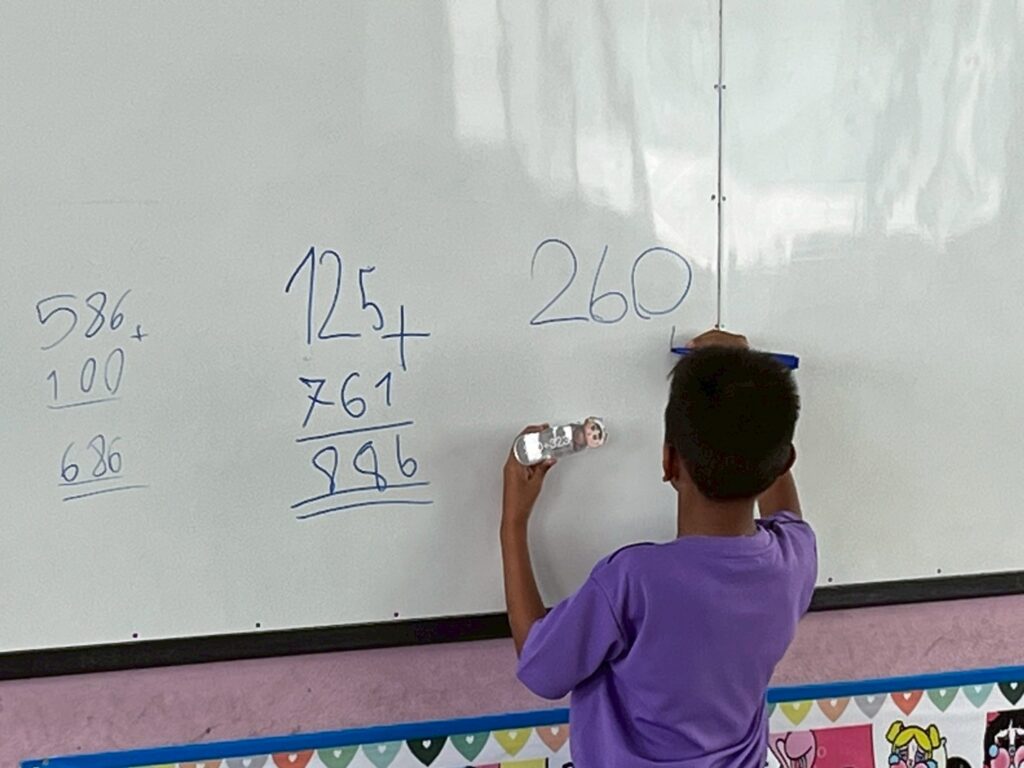 586 +
100
686
125 +
761
886
260